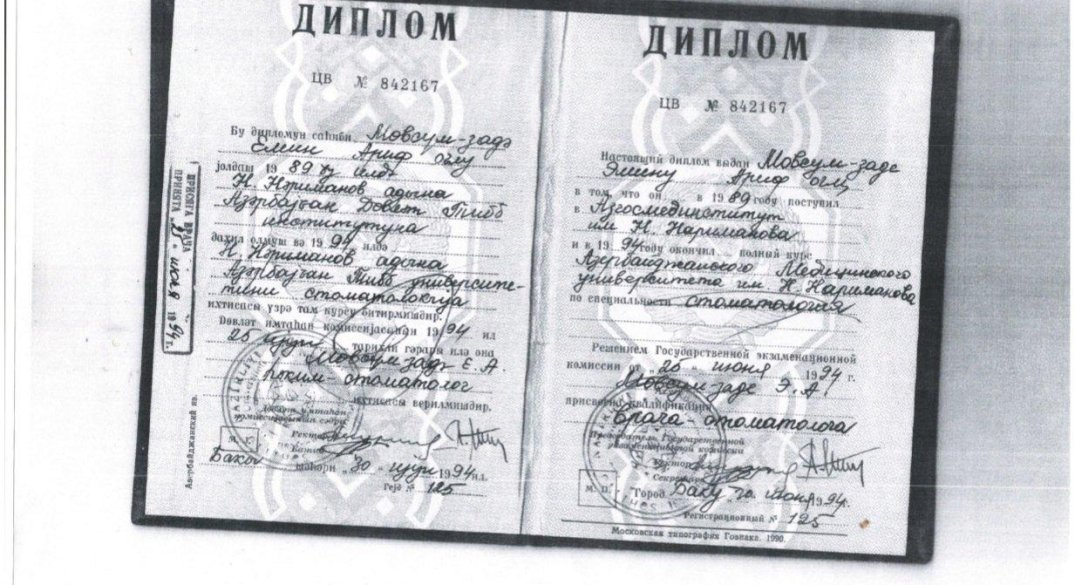 ДИПЛОМ
ЦВ № 842167
Бу дипломун саһиби Мовсум-задə
Елмин Ариф оглу
јолдаш 19 89 ҹу илдə
Н. Нəриманов адына
Азəрбајҹан Довлəт Тибб
институтуна
дахил олмуш вə 19 94 илдə
Н. Нəриманов адына
Азəрбајҹан Тибб университе-
тини стоматолокија
ихтисасы үзрə там курсу битирмишдир.
Дөвлəт имтаһан комиссијасынын 19 94 ил
25 ијун тарихли гəрары илə она
Мовсум-задə Е. А.
һəким-стоматолог
ихтисасы верилмишдир.
Ректор
Катиб
М. Е.
Бакы шəһəри „30“ ијун 1994 ил.
Гејд № 125
Азербайджанский яз.
ПРИСЯГА ВРАЧА
ПРИНЯТА
1994 г.
ДИПЛОМ
ЦВ № 842167
Настоящий диплом выдан Мовсум-заде
Эмину Ариф оглы
в том, что он в 1989 году поступил
в Азгосмединститут
им Н. Нариманова
и в 1994 году окончил полный курс
Азербайджанского Медицинского
университета им Н. Нариманова
по специальности стоматология
Решением Государственной экзаменационной
комиссии от „25“ июня 1994 г.
Мовсум-заде Э. А.
присвоена квалификация
врача-стоматолога
Председатель Государственной
экзаменационной комиссии
Ректор
Секретарь
М. П.
Город Баку 30 июня 1994.
Регистрационный № 125
Московская типография Гознака. 1990.